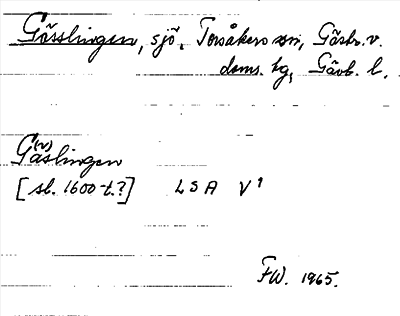 Gässlingen, sjö, Torsåkers sn, Gästr. v.
doms. hg, Gävb. l.
G(v)äslingen
[sl. 1600-t.?] LSA V¹
FW. 1965.